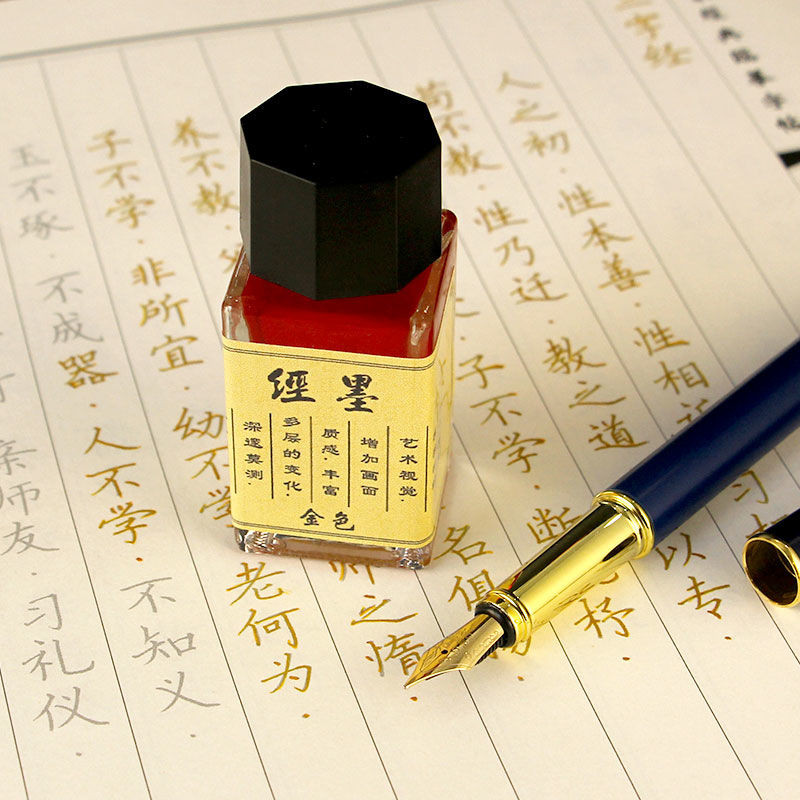 三字经
人之初·性本善·性相近 习
苟不教·性乃迁·教之道 以专·
子不学·断 杼·
名俱扬·
养不教·父 师之惰·
子不学·非所宜·幼不学 老何为·
玉不琢·不成器·人不学·不知义·
亲师友·习礼仪·
經墨
艺术视觉·
增加画面
质感·丰富
多层的变化·
深邃莫测·
金色